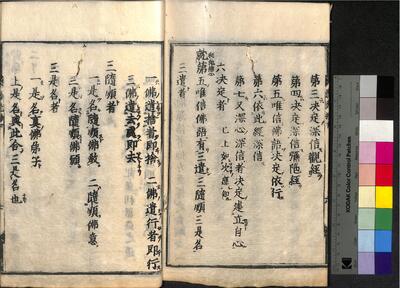 第三決定深信觀經
第四決定深信彌陀經
第五唯信佛語決定依行
第六依此經深信
第七又深心深信者決定建立自心
六決定者
就第五唯信佛語有三遣三隨順三是名
三遣者
一佛遣捨者即捨 二佛遣行者即行
三佛遣去處即去
三隨順者
一是名隨順佛教 二隨順佛意
三是名隨順佛願
三是名者
一是名真佛弟子
上是名與此合三是名也
KODAK Color Control Patches